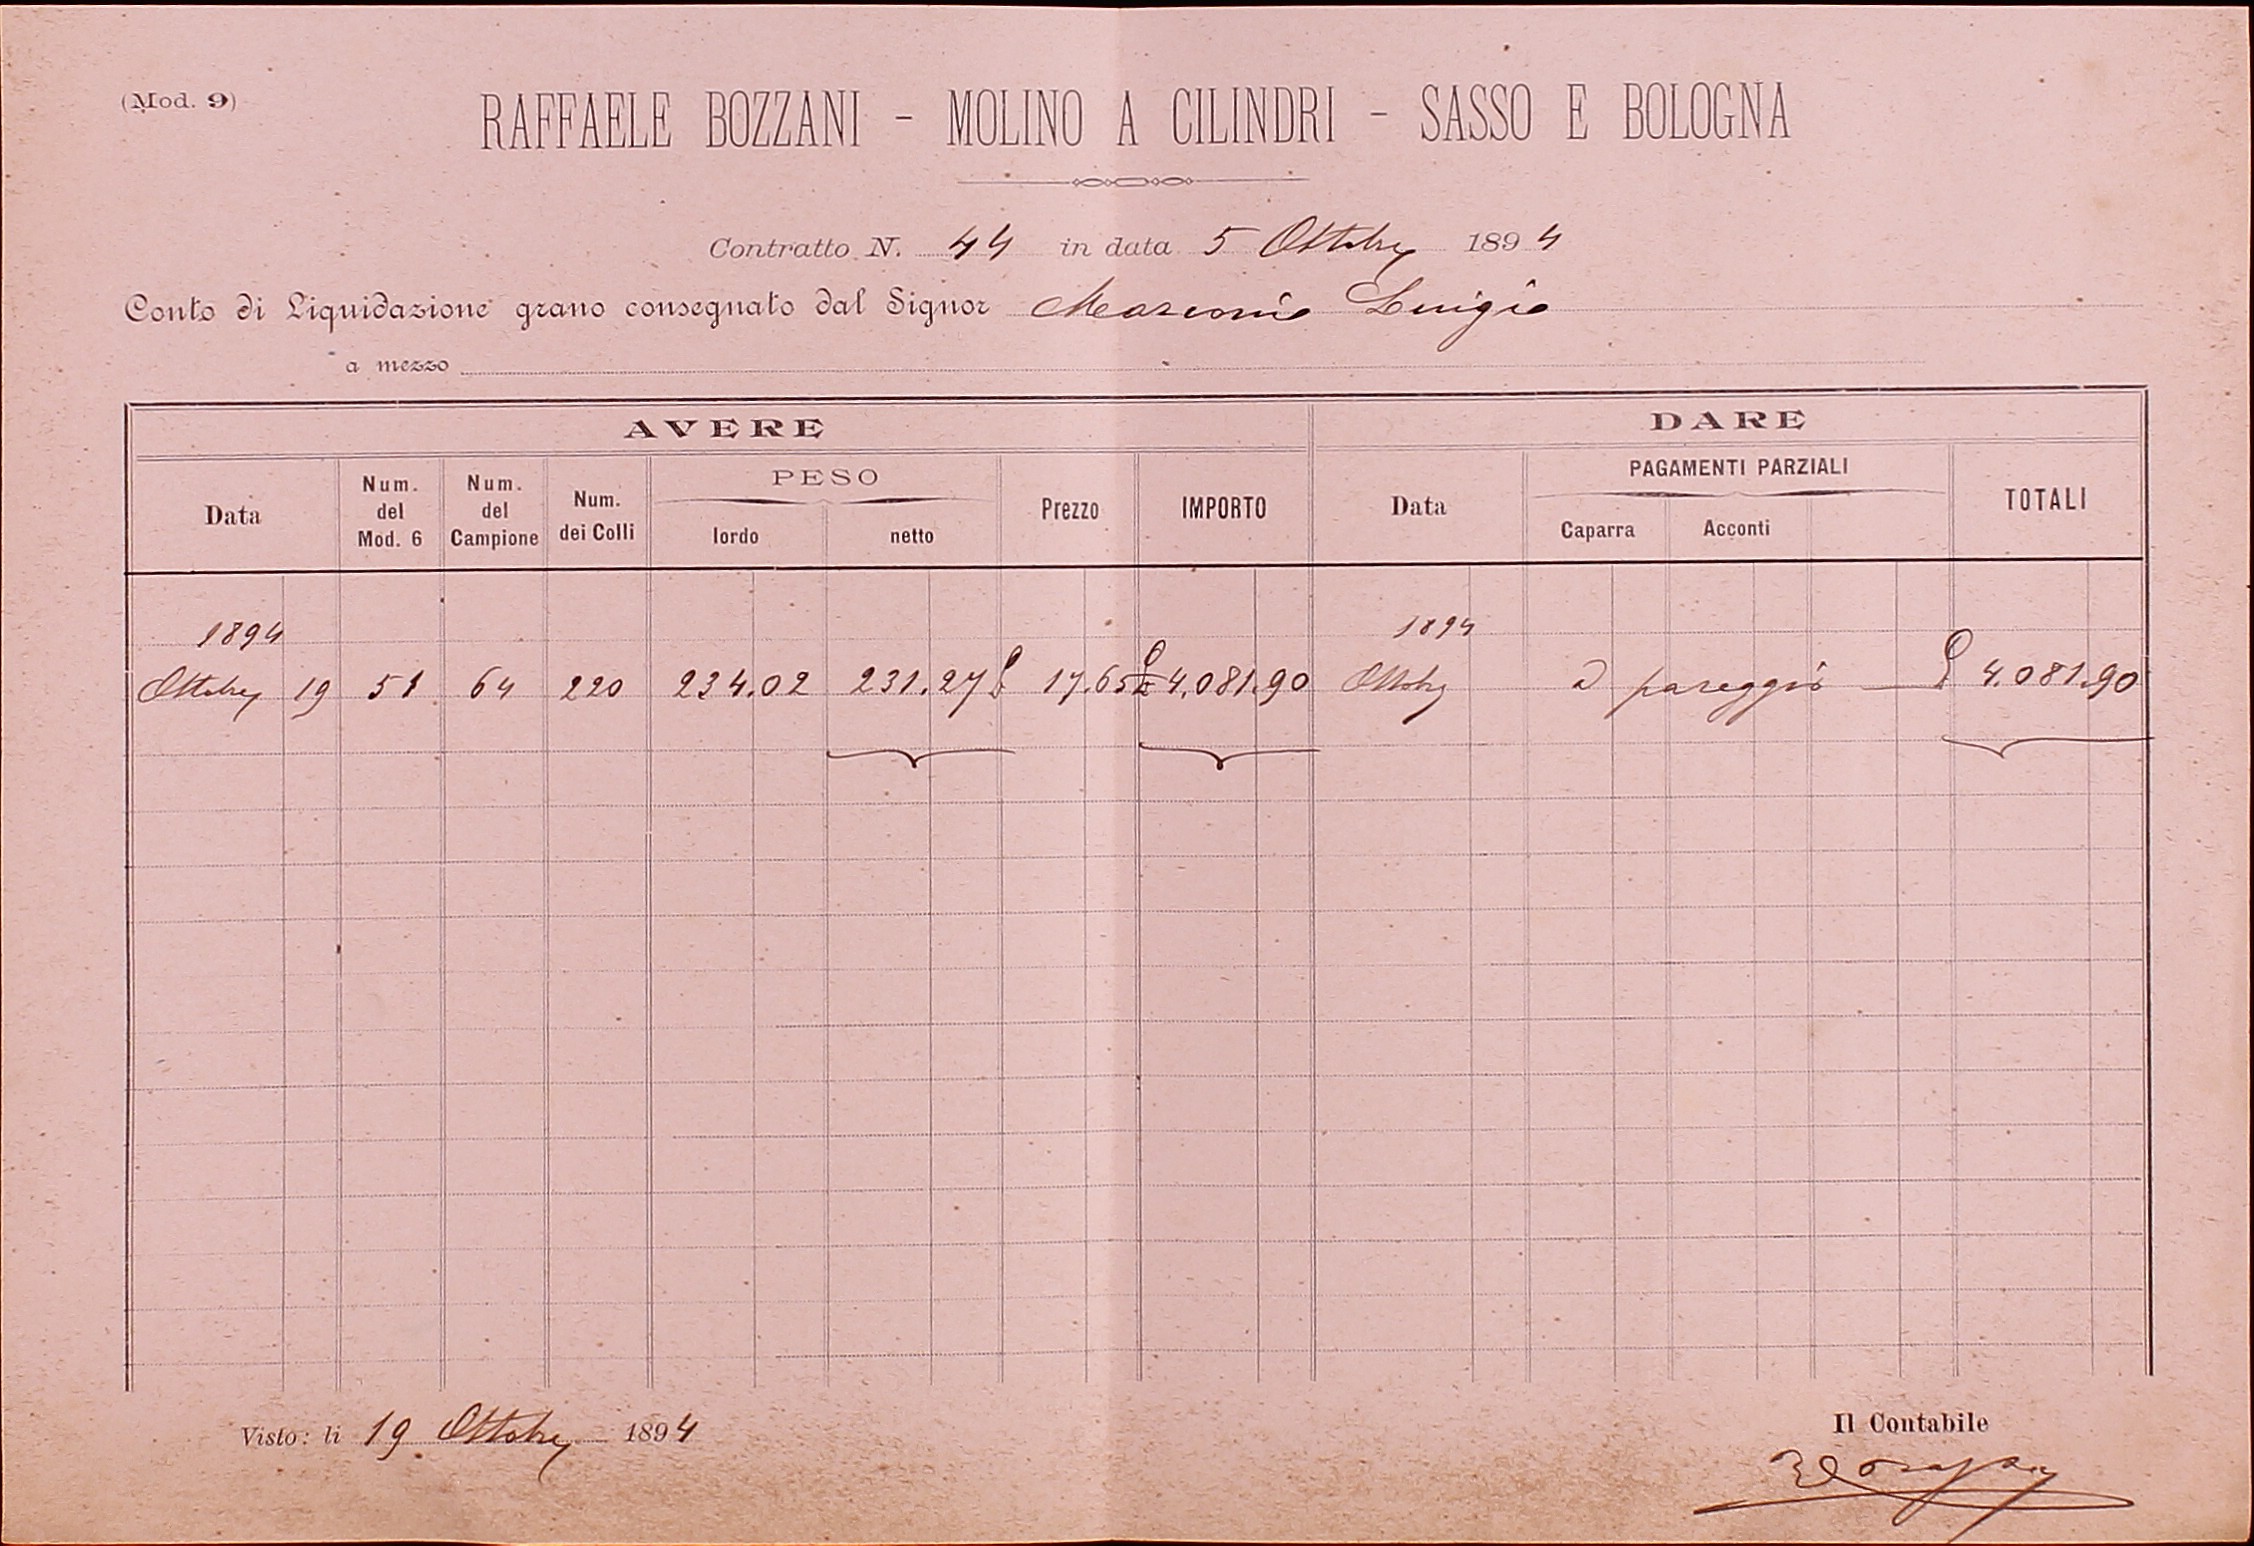 (Mod. 9)
RAFFAELE BOZZANI - MOLINO A CILINDRI - SASSO E BOLOGNA
Contratto N. 44 in data 5 Ottobre 1894
Conto di Liquidazione grano consegnato dal Signor Marconi Luigi
a mezzo
AVERE DARE
Data Num. del Mod. 6 Num. del Campione Num. dei Colli PESO lordo netto Prezzo IMPORTO Data PAGAMENTI PARZIALI Caparra Acconti TOTALI
1894 1894
Ottobre 19 51 64 220 234.02 231.27 £ 17.65 £ 4,081.90 Ottobre a pareggio £ 4.081.90
Visto: li 19 Ottobre 1894
Il Contabile